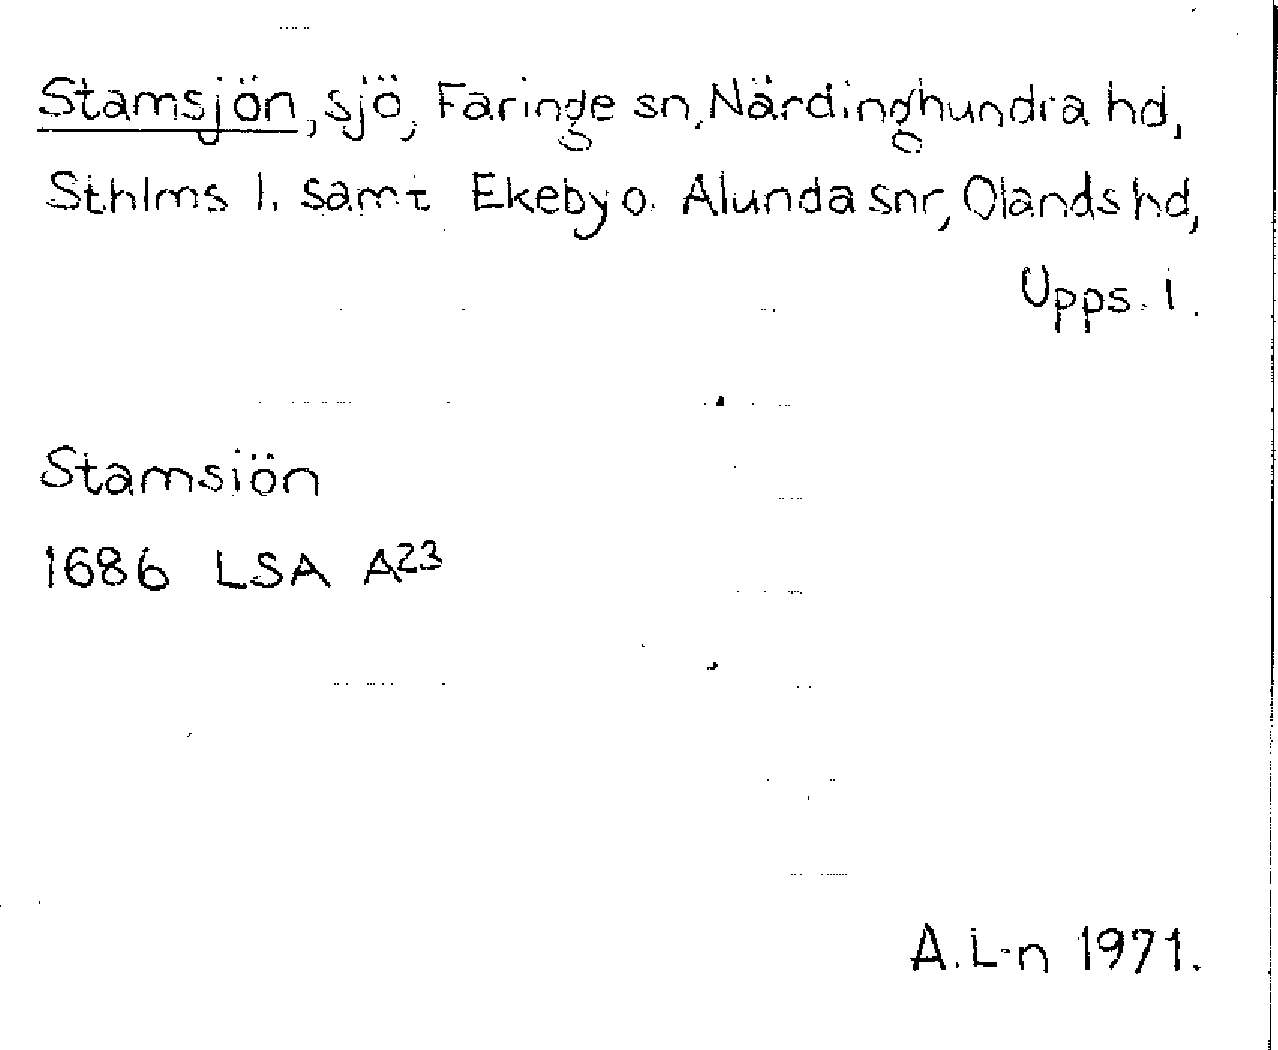 Stamsjön, sjö, Faringe sn, Närdinghundra hd,
Sthlms l. samt Ekeby o. Alunda snr, Olands hd,
Upps. l.
Stamsiön
1686 LSA A23
A. L-n 1971.